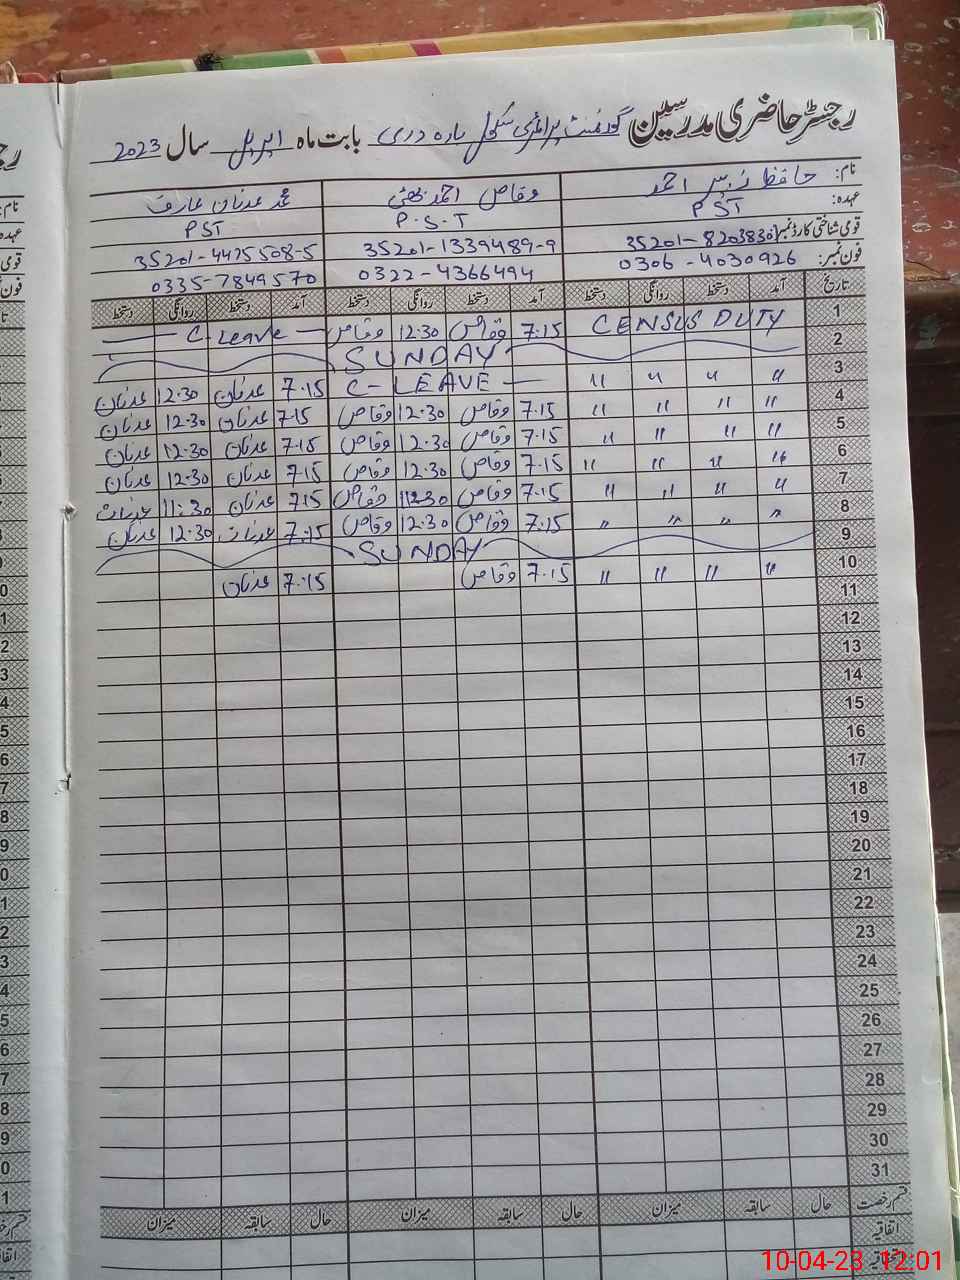 رجسٹر حاضری مدرسین گورنمنٹ پرائمری سکول بارہ دری بابت ماہ اپریل سال 2023
نام: حافظ زبیر احمد وقاص احمد بھٹی محمد عدنان عارف
عہدہ: PST P.S.T PST
قومی شناختی کارڈ نمبر: 35201-8203830 35201-1339489-9 35201-4425508-5
فون نمبر: 0306-4030926 0322-4366494 0335-7849570
تاریخ آمد دستخط روانگی دستخط آمد دستخط روانگی دستخط آمد دستخط روانگی دستخط
1 CENSUS DUTY 7.15 وقاص 12.30 وقاص C-Leave
2 SUNDAY
3 " " " " C-LEAVE 7.15 عدنان 12.30 عدنان
4 " " " " 7.15 وقاص 12.30 وقاص 7.15 عدنان 12.30 عدنان
5 " " " " 7.15 وقاص 12.30 وقاص 7.15 عدنان 12.30 عدنان
6 " " " " 7.15 وقاص 12.30 وقاص 7.15 عدنان 12.30 عدنان
7 " " " " 7.15 وقاص 11230 وقاص 7.15 عدنان 11:30 عدنان
8 " " " " 7.15 وقاص 12.30 وقاص 7.15 عدنان 12.30 عدنان
9 SUNDAY
10 " " " " 7.15 وقاص 7.15 عدنان
11
12
13
14
15
16
17
18
19
20
21
22
23
24
25
26
27
28
29
30
31
قسم رخصت حال سابقہ میزان حال سابقہ میزان حال سابقہ میزان
اتفاقیہ
10-04-23 12:01